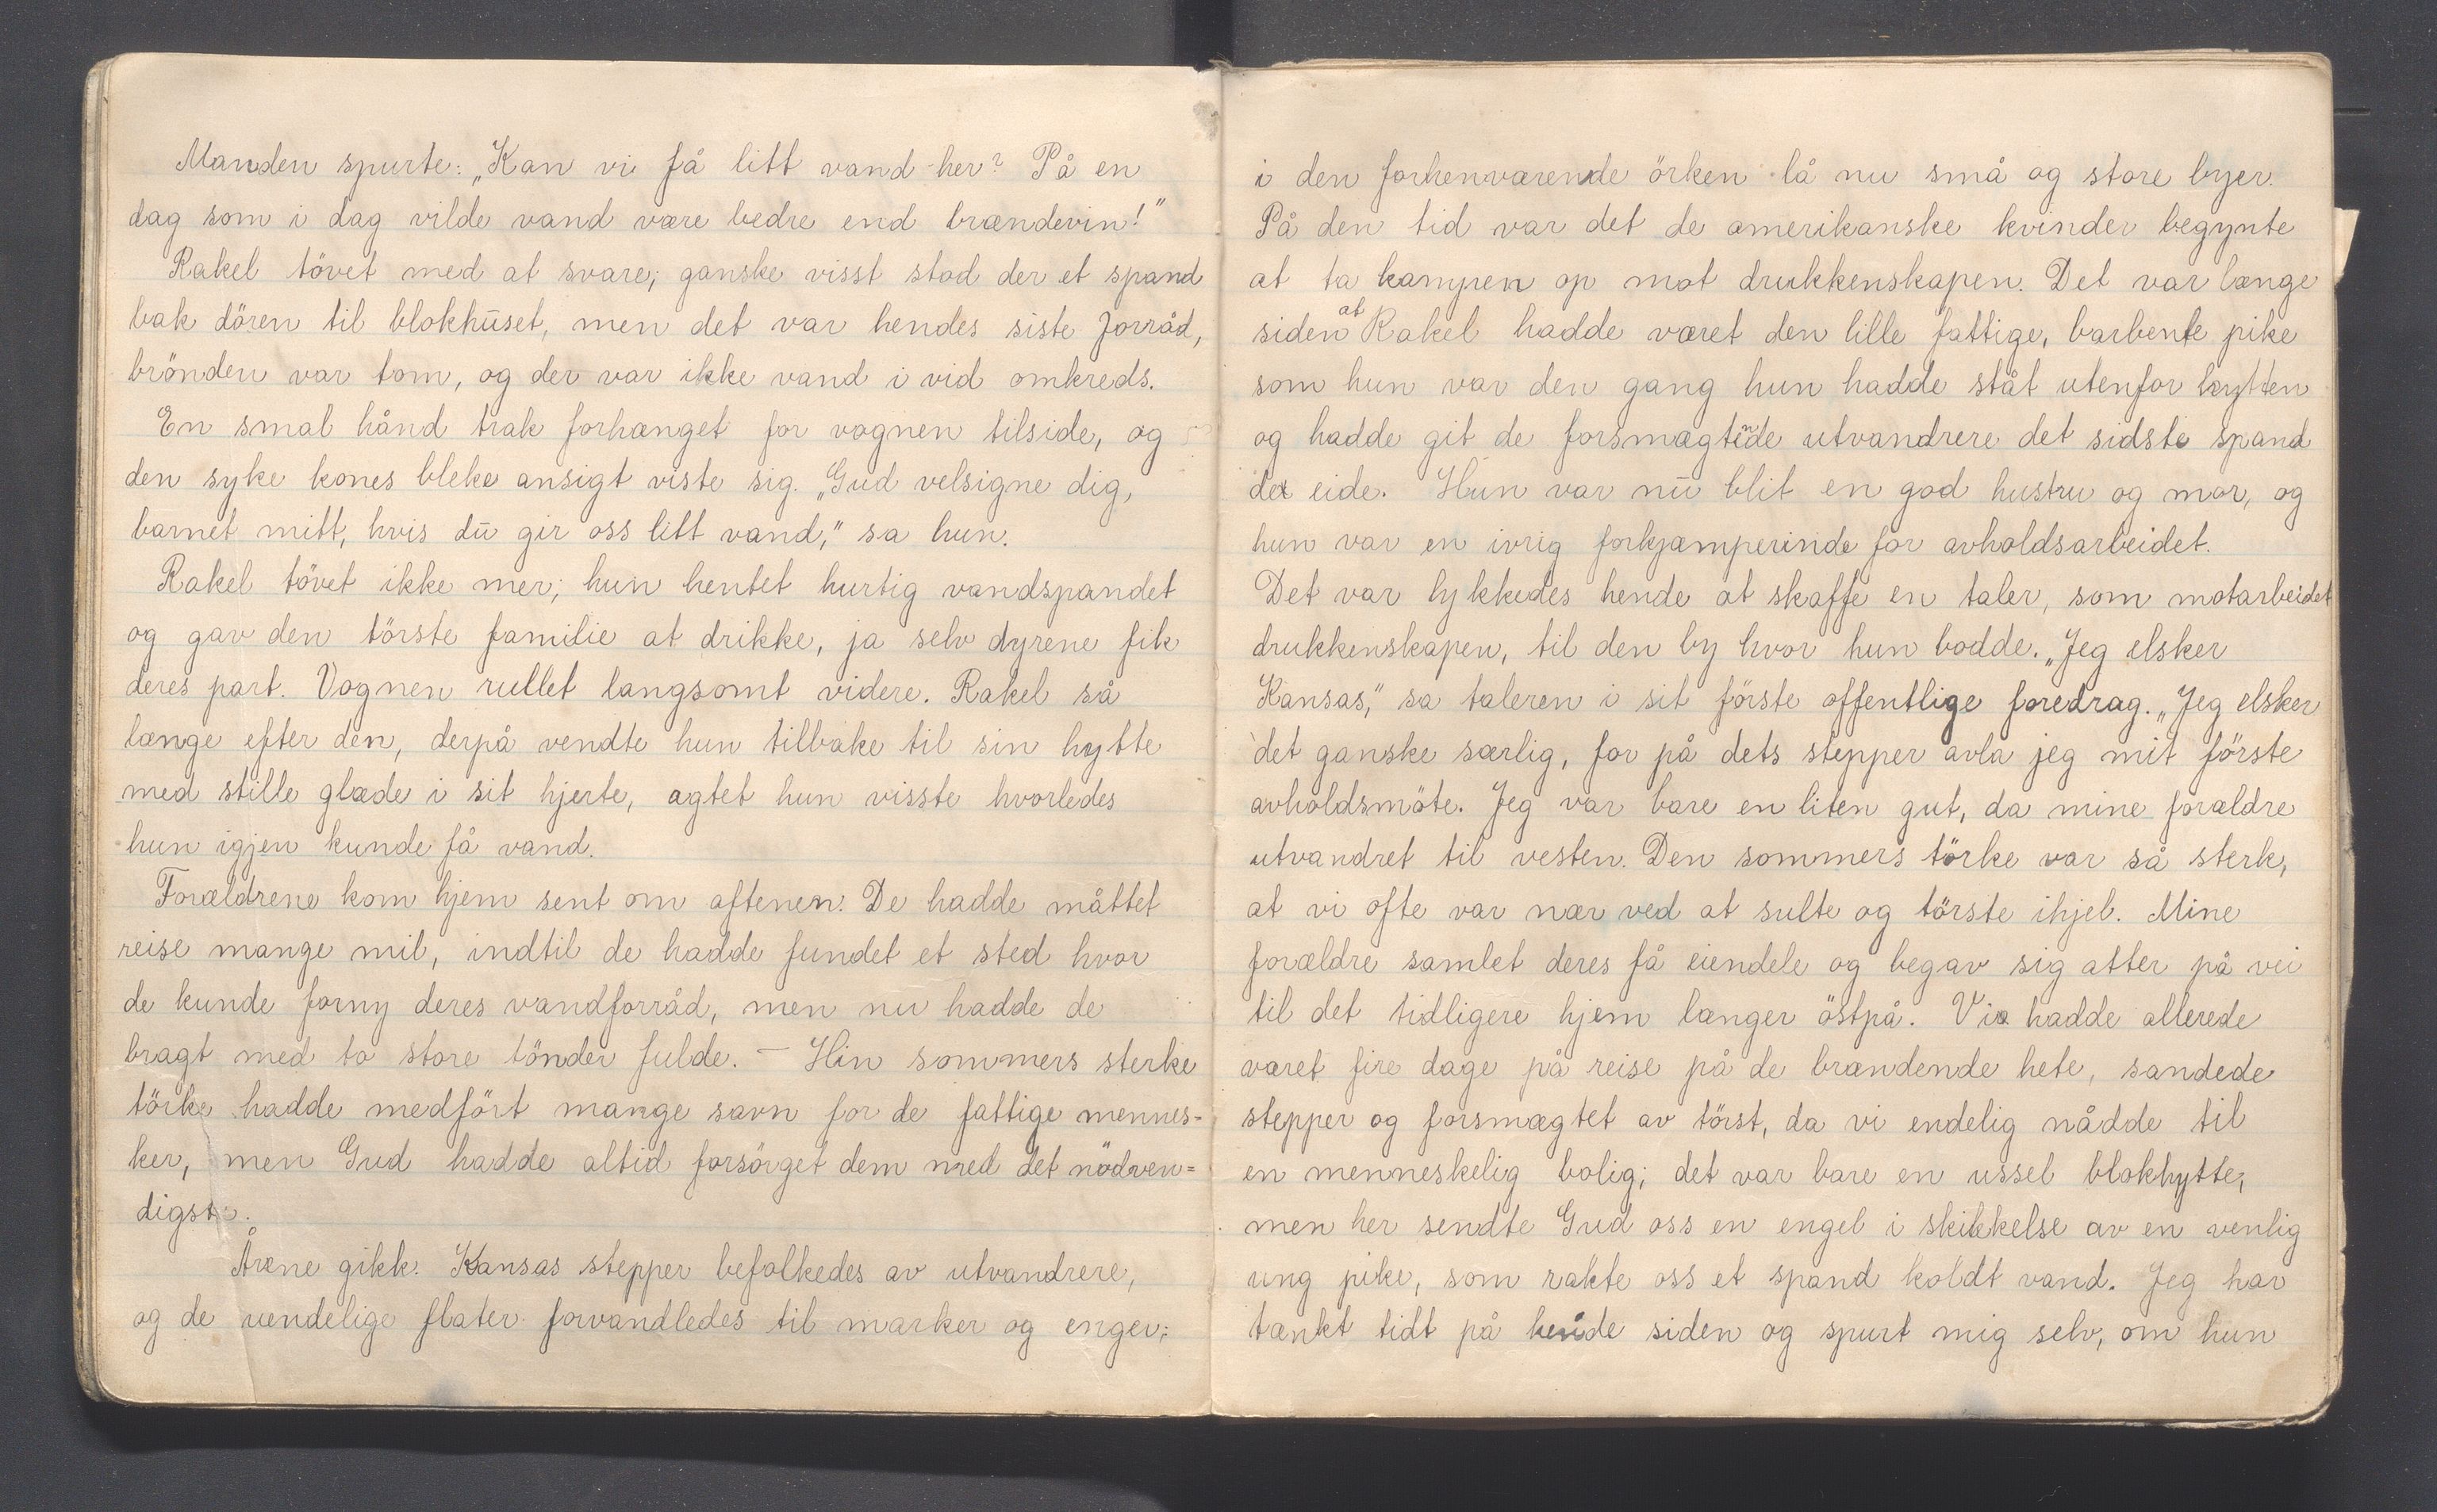 Manden spurte: „Kan vi få litt vand her? På en
dag som i dag vilde vand være bedre end brændevin!"
Rakel tövet med at svare; ganske visst stod der et spand
bak dören til blokhūset, men det var hendes siste forråd,
brönden var tom, og der var ikke vand i vid omkreds.
En smal hånd trak forhænget for vognen tilside, og
den syke kones bleke ansigt viste sig. „Gud velsigne dig,
barnet mitt, hvis dū gir oss litt vand," sa hun.
Rakel tövet ikke mer; hun hentet hurtig vandspandet
og gav den törste familie at drikke, ja selv dyrene fik
deres part. Vognen rullet langsomt videre. Rakel så
længe efter den, derpå vendte hun tilbake til sin hytte
med stille glæde i sit hjerte, agtet hun visste hvorledes
hun igjen kunde få vand.
Forældrene kom hjem sent om aftenen. De hadde måttet
reise mange mil, indtil de hadde fundet et sted hvor
de kunde forny deres vandforråd, men nu hadde de
bragt med to store tönder fulde. – Hin sommers sterke
törke hadde medfört mange savn for de fattige mennes-
ker, men Gud hadde altid forsörget dem med det nödven=
digste.
Årene gikk. Kansas stepper befolkedes av utvandrere,
og de uendelige flater forvandledes til marker og enger;
i den forhenværende örken lå nu små og store byer.
På den tid var det de amerikanske kvinder begynte
at ta kampen op mot drukkenskapen. Det var længe
siden at Rakel hadde været den lille fattige, barbente pike
som hun var den gang hun hadde ståt utenfor hytten
og hadde git de forsmægtende utvandrere det sidste spand
de eide. Hun var nū blit en god hustru og mor, og
hun var en ivrig forkjæmperinde for avholdsarbeidet.
Det var lykkedes hende at skaffe en taler, som motarbeidet
drukkenskapen, til den by hvor hun bodde. „Jeg elsker
Kansas," sa taleren i sit förste offentlige foredrag. „Jeg elsker
det ganske særlig, for på dets stepper avla jeg mit förste
avholdsmöte. Jeg var bare en liten gut, da mine forældre
utvandret til vesten. Den sommers törke var så sterk,
at vi ofte var nær ved at sulte og törste ihjel. Mine
forældre samlet deres få eiendele og begav sig atter på vei
til det tidligere hjem længer östpå. Vi hadde allerede
været fire dage på reise på de brændende hete, sandede
stepper og forsmægtet av törst, da vi endelig nådde til
en menneskelig bolig; det var bare en ussel blokhytte,
men her sendte Gud oss en engel i skikkelse av en venlig
ung pike, som rakte oss et spand koldt vand. Jeg har
tænkt tidt på hende siden og spurt mig selv, om hun